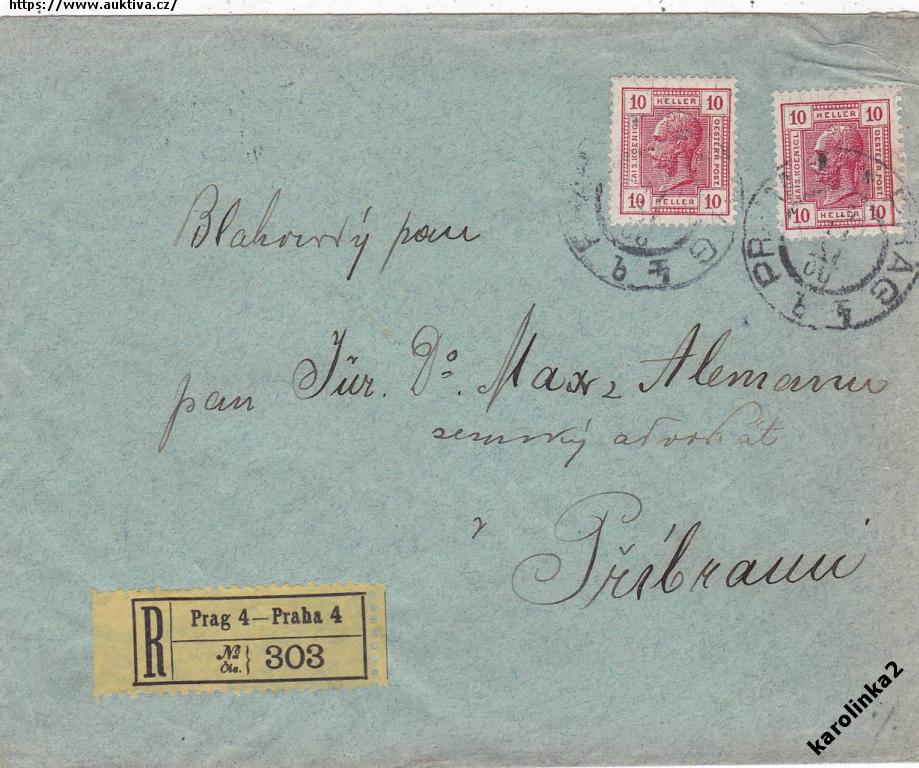 https://www.auktiva.cz/
10 HELLER 10
KAIS. KOENIGL. OESTERR. POST.
10 HELLER 10
10 HELLER 10
KAIS. KOENIGL. OESTERR. POST.
10 HELLER 10
PRAG
Blahorodý pan
pan Jur. Dr. Max. Alemann
zemský advokát
v
Příbrami
R
Prag 4—Praha 4
No
Čís. } 303
karolinka2